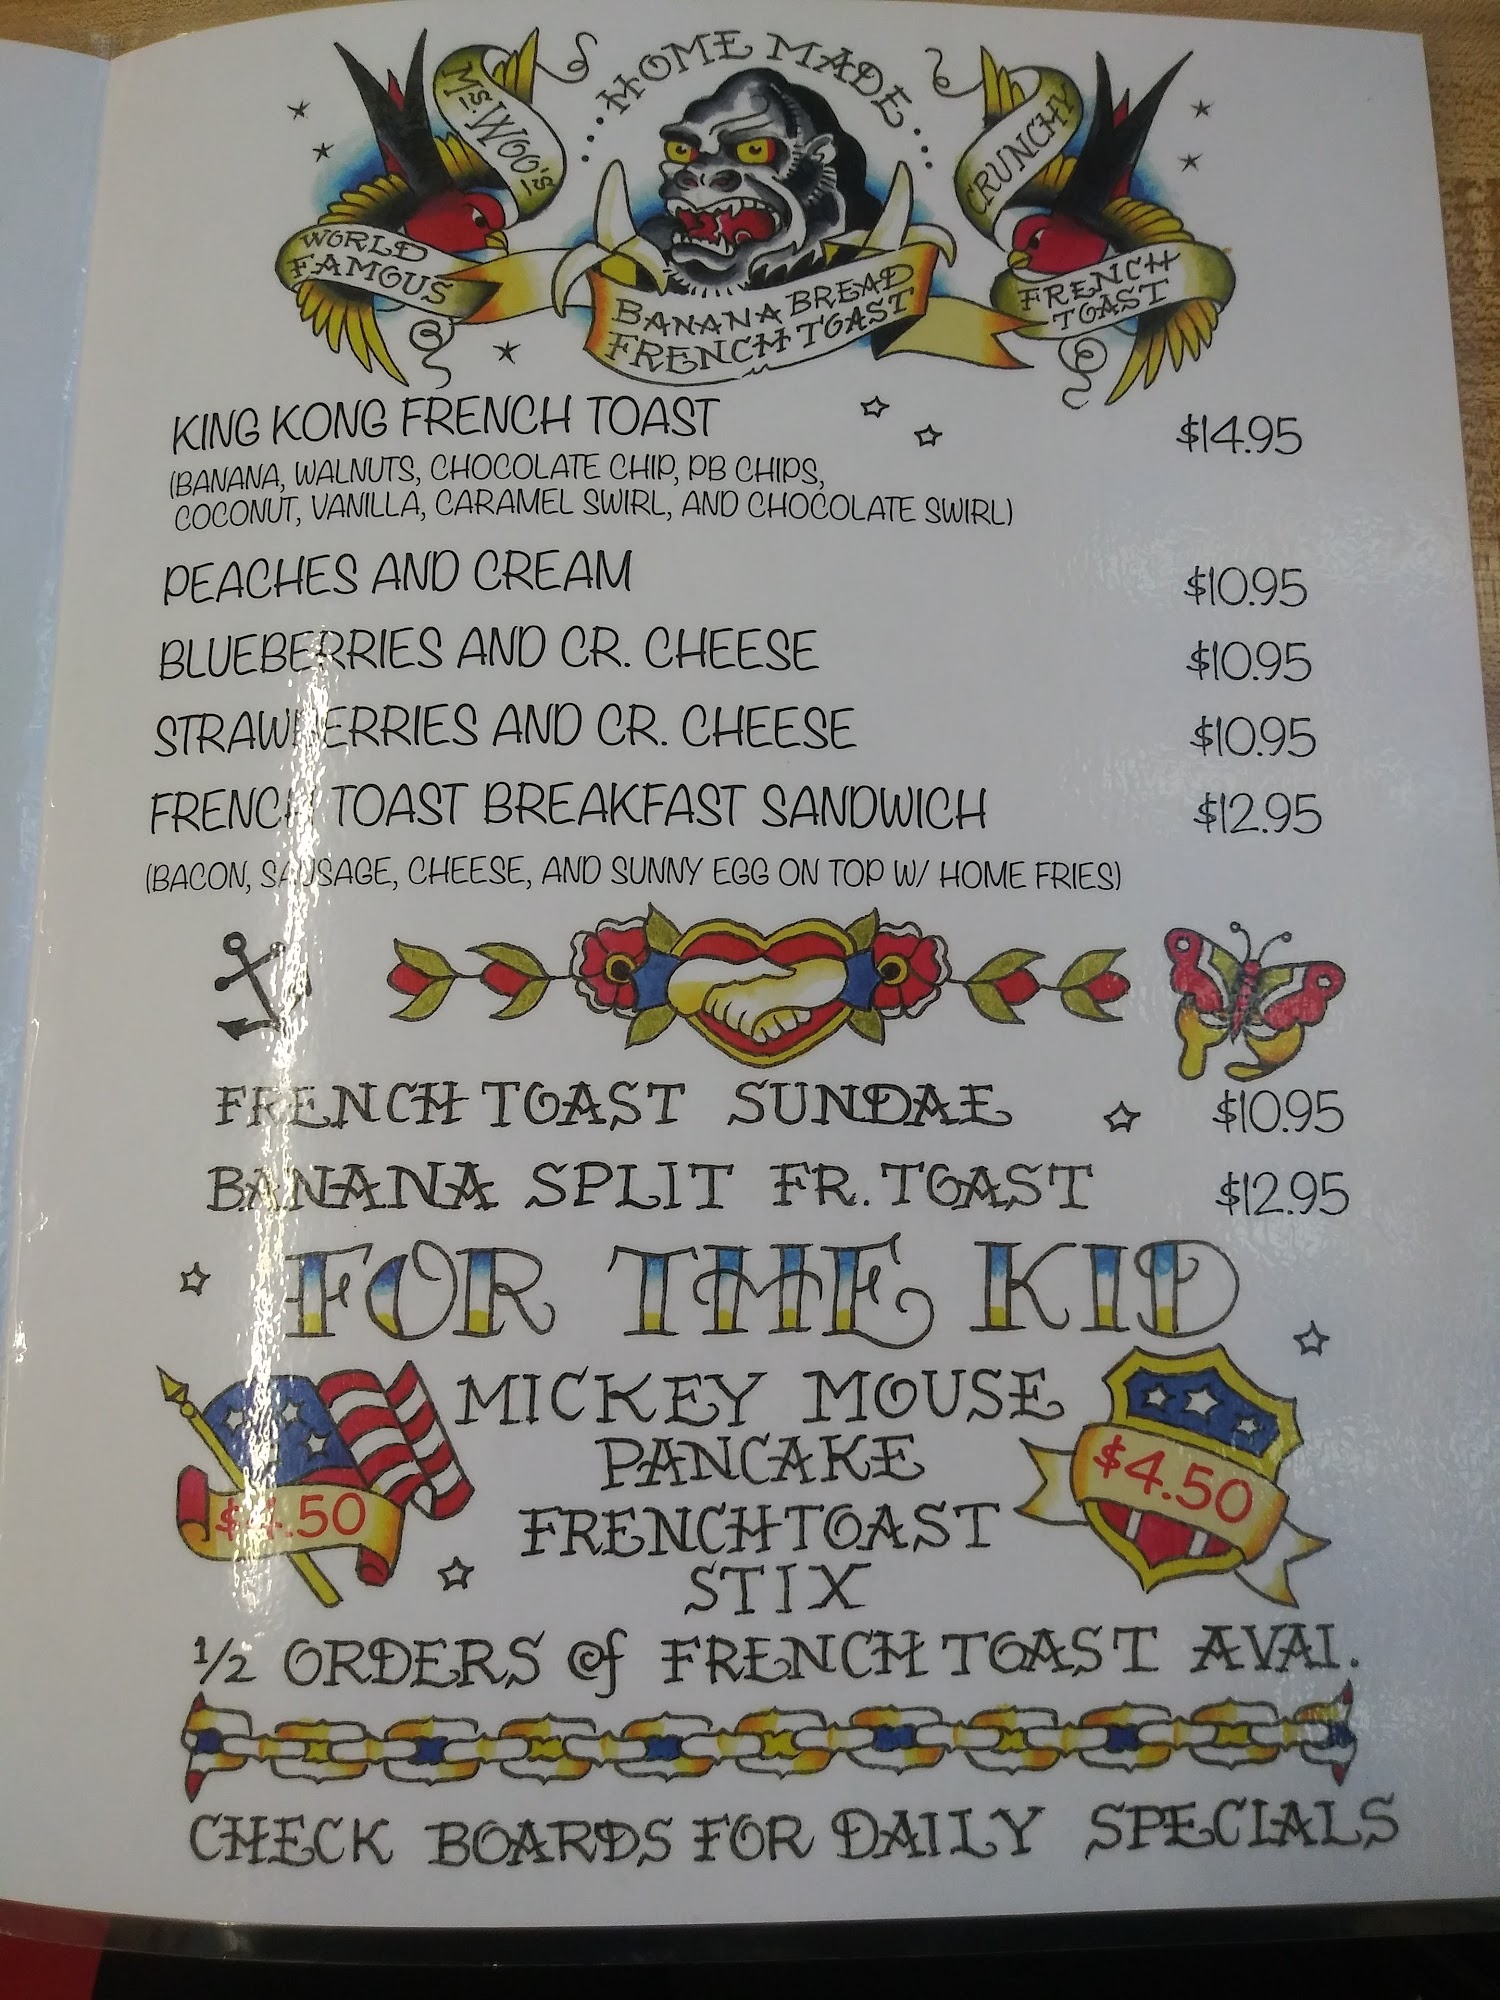 HOME MADE
Ms. WOO'S
WORLD
FAMOUS
BANANA BREAD
FRENCH TOAST
CRUNCHY
FRENCH
TOAST
KING KONG FRENCH TOAST $14.95
(BANANA, WALNUTS, CHOCOLATE CHIP, PB CHIPS,
COCONUT, VANILLA, CARAMEL SWIRL, AND CHOCOLATE SWIRL)
PEACHES AND CREAM $10.95
BLUEBERRIES AND CR. CHEESE $10.95
STRAWBERRIES AND CR. CHEESE $10.95
FRENCH TOAST BREAKFAST SANDWICH $12.95
(BACON, SAUSAGE, CHEESE, AND SUNNY EGG ON TOP W/ HOME FRIES)
FRENCH TOAST SUNDAE $10.95
BANANA SPLIT FR. TOAST $12.95
FOR THE KID
MICKEY MOUSE
PANCAKE
$4.50
$4.50
FRENCH TOAST
STIX
1/2 ORDERS of FRENCH TOAST AVAI.
CHECK BOARDS FOR DAILY SPECIALS